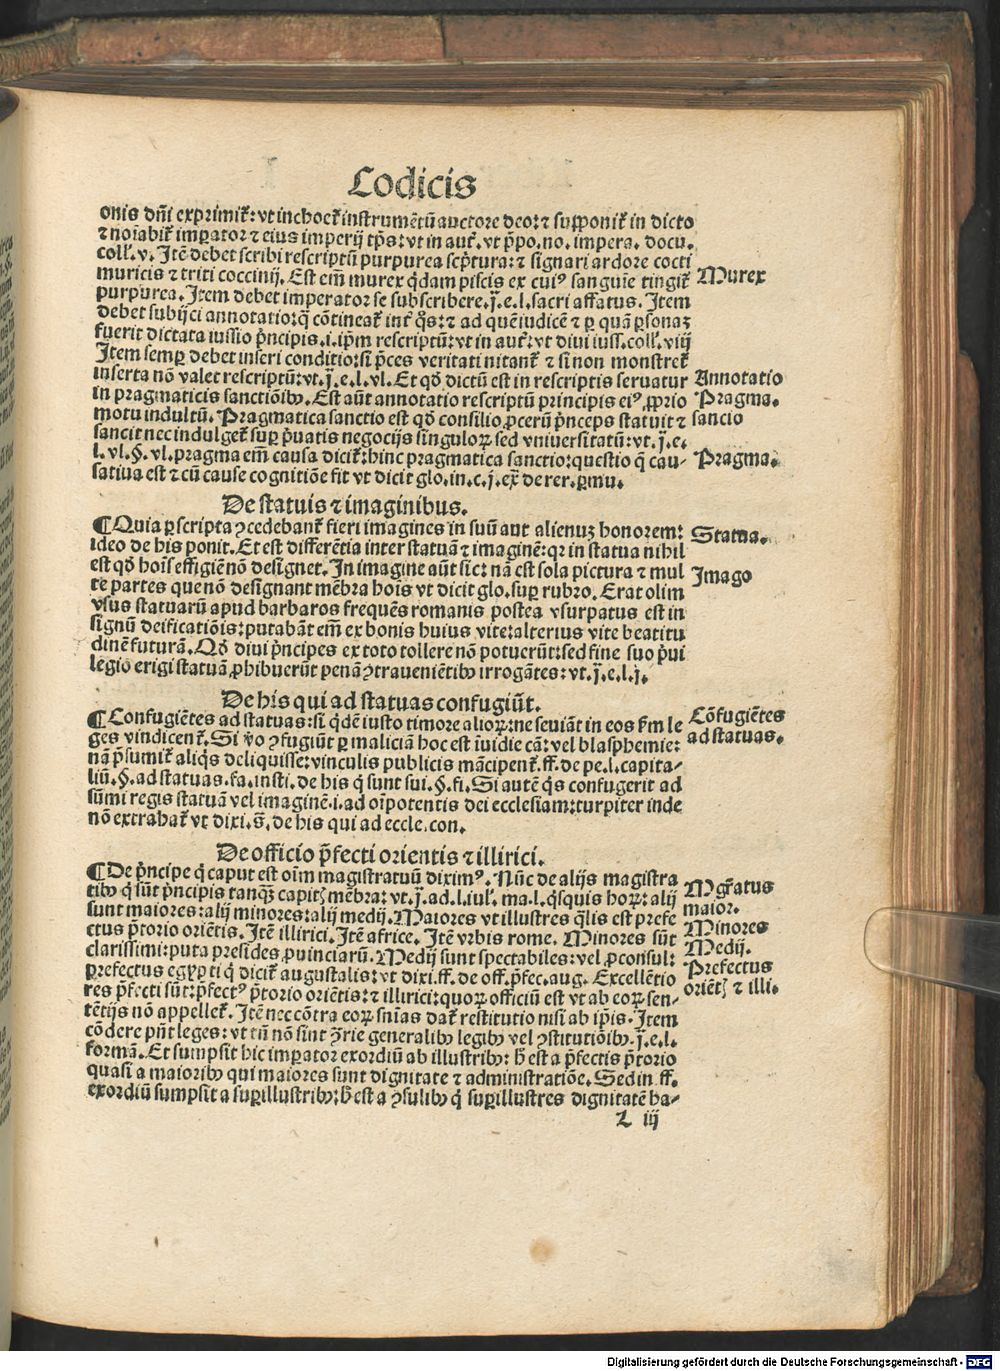 Codicis
onis dñi exprimit᷑: vt in hoc c̃ instrumẽtũ auctore deo: ⁊ supponit᷑ in dicto
⁊ noĩabit᷑ imꝑator ⁊ eius imperij tp̃s: vt in aut᷑. vt p̃po. no. impera. docu.
coll᷑. v. Itẽ debet scribi rescriptũ purpurea scp̃tura: ⁊ signari ardore cocti
muricis ⁊ triti coccinij. Est em̃ murex q̃dam piscis ex cuiꝰ sanguine tingit᷑
Murex
purpurea. Item debet imperator se subscribere. j̃. e. l. sacri affatus. Item
debet subijci annotatio: q̃ cõtineat᷑ int᷑ q̃s: ⁊ ad quẽ iudicẽ ⁊ ꝑ quã ꝑsonaꝫ
fuerit dictata iussio p̃ncipis. i. ip̃m rescriptũ: vt in aut᷑. vt diui iuss. coll᷑. viij
Item semꝑ debet inseri conditio: si p̃ces veritati nitant᷑ ⁊ si non monstret᷑
inserta nõ valet rescriptũ: vt. j̃. e. l. vl. Et qð dictũ est in rescriptis seruatur
Annotatio
in pragmaticis sanctiõibꝫ. Est aũt annotatio rescriptũ principis eiꝰ ꝓprio
Pragma.
motu indultũ. Pragmatica sanctio est qð consilio ꝓcerũ p̃nceps statuit ⁊
sancio
sancit nec indulget᷑ suꝑ p̃uatis negocijs singuloꝝ sed vniuersitatũ: vt. j̃. e.
l. vl. §. vl. pragma em̃ causa dicit᷑: hinc pragmatica sanctio: questio q̃ cau-
Pragma.
satiua est ⁊ cũ cause cognitiõe fit vt dicit glo. in. c. j. ex̃ de rer. ꝑmu.
De statuis ⁊ imaginibus.
¶ Quia ꝑ scripta ꝯcedebant᷑ fieri imagines in suũ aut alienuꝫ honorem:
Statua.
ideo de his ponit. Et est differẽtia inter statuã ⁊ imaginẽ: qꝛ in statua nihil
est qð hoĩs effigiẽ nõ designet. In imagine aũt sic: nã est sola pictura ⁊ mul
Imago
te partes que nõ designant mẽbra hoĩs vt dicit glo. suꝑ rubro. Erat olim
vsus statuarũ apud barbaros frequẽs romanis postea vsurpatus est in
signũ deificatiõis: putabãt em̃ ex bonis huius vite: alterius vite beatitu
dinẽ futurã. Qð diui p̃ncipes ex toto tollere nõ potuerũt: sed sine suo p̃ui
legio erigi statuã ꝓhibuerũt penã ꝯtraueniẽtibꝫ irrogãtes: vt. j̃. e. l. j.
De his qui ad statuas confugiũt.
¶ Confugiẽtes ad statuas: si q̃dẽ iusto timore alioꝝ: ne seuiãt in eos f̃m le
Cõfugiẽtes
ges vindicent᷑. Si v̊o ꝯfugiũt ꝑ maliciã hoc est ĩuidie cã: vel blasphemie:
ad statuas.
nã p̃sumit᷑ aliq̃s deliquisse: vinculis publicis mãcipent᷑. ff. de pe. l. capita-
liũ. §. ad statuas. fa. insti. de his q̃ sunt sui. §. fi. Si autẽ q̃s confugerit ad
sũmi regis statuã vel imaginẽ. i. ad oĩpotentis dei ecclesiam: turpiter inde
nõ extrahat᷑ vt dixi. s̃. de his qui ad eccle. con.
De officio p̃fecti orientis ⁊ illirici.
¶ De p̃ncipe q̃ caput est oĩm magistratuũ diximꝰ. Nũc de alijs magistra
Mgr̃atus
tibꝫ q̃ sũt p̃ncipis tanqꝫ capitꝭ mẽbra: vt. j̃. ad. l. iul᷑. ma. l. q̃squis hoꝝ: alij
sunt maiores: alij minores: alij medij. Maiores vt illustres q̃lis est prefe
maior.
ctus p̃torio oriẽtis. Itẽ illirici. Itẽ africe. Itẽ vrbis rome. Minores sũt
Minores
clarissimi: puta presides ꝓuinciarũ. Medij sunt spectabiles: vel ꝓconsul:
Medij.
p̃refectus egypti q̃ dicit᷑ augustalis: vt dixi. ff. de off. p̃fec. aug. Excellẽtio
Prefectus
res p̃fecti sũt: p̃fectꝰ p̃torio oriẽtis: ⁊ illirici: quoꝝ officiũ est vt ab eoꝝ sen-
oriẽtꝭ ⁊ illi.
tẽtijs nõ appellet᷑. Itẽ nec cõtra eoꝝ sñias dat᷑ restitutio nisi ab ip̃is. Item
cõdere pñt leges: vt tñ nõ sint ꝯ̃rie generalibꝫ legibꝫ vel ꝯstitutiõibꝫ. j̃. e. l.
formã. Et sumpsit hic imꝑator exordiũ ab illustribꝫ: h̃ est a p̃fectis p̃torio
quasi a maioribꝫ qui maiores sunt dignitate ⁊ administratiõe. Sed in ff.
exordiũ sumpsit a suꝑillustribꝫ: h̃ est a ꝯsulibꝫ q̃ suꝑillustres dignitatẽ ha-
L iij
Digitalisierung gefördert durch die Deutsche Forschungsgemeinschaft - DFG